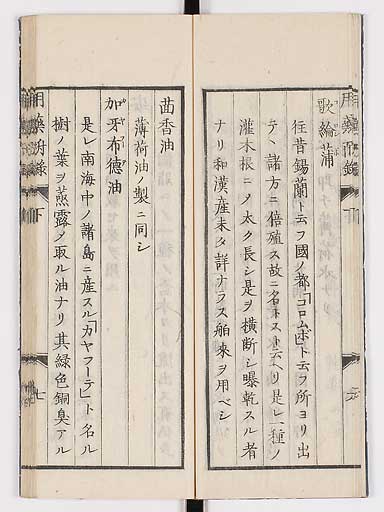 歌綸蒲
往昔錫蘭ト云フ國ノ都「コロムボ」ト云フ所ヨリ出
テヽ諸方ニ倍殖ス故ニ名トスト云ヘリ是レ一種ノ
灌木根ニノ太ク長シ是ヲ横断シ曝乾スル者
ナリ和漢産未タ詳ナラス舶來ヲ用ベシ
茴香油
薄荷油ノ製ニ同シ
加牙布德油
是レ南海中ノ諸島ニ産スル「カヤフーテ」ト名ル
樹ノ葉ヲ蒸露ノ取ル油ナリ其緑色銅臭アル
用藥附録 下 七